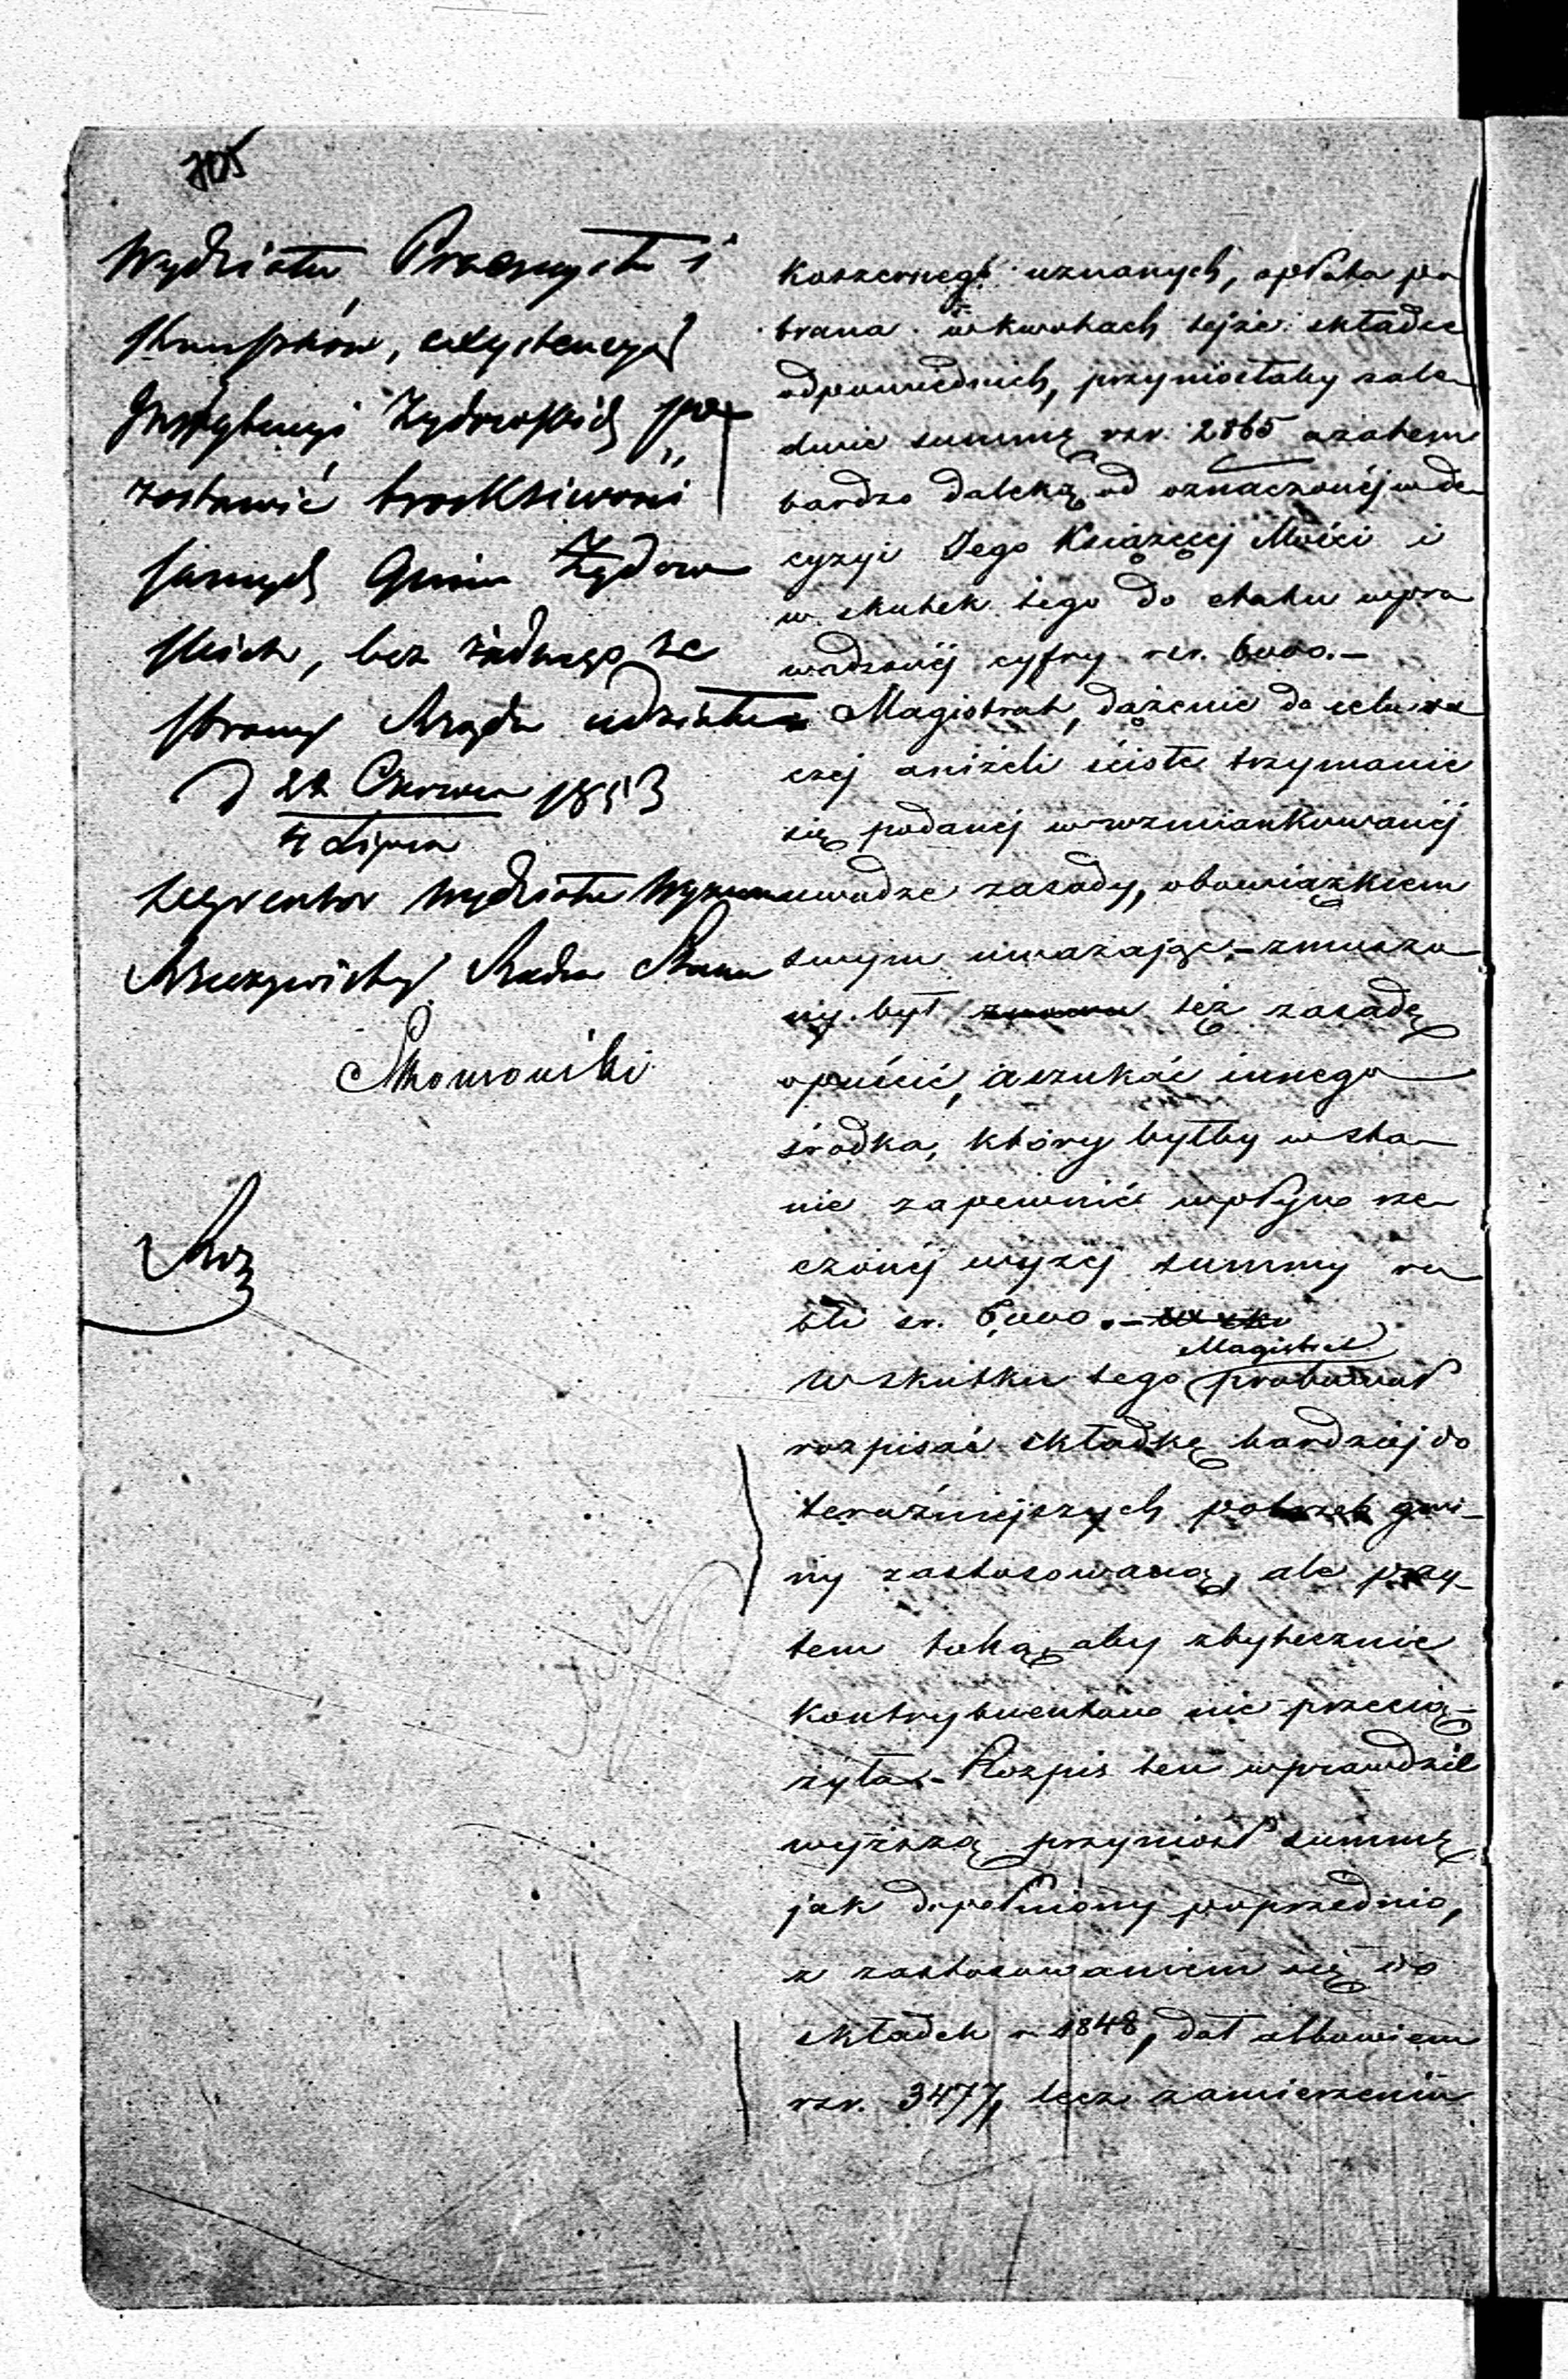 705
Wydziału, Przemysłu i
Skupków, exystencyą
Instytucyi Żydowskich po„
zostawić troskliwości
samych Gmin Żydow
skich, bez żadnego ze
strony Rządu udziału
d 22 Czerwca 1853
4 Lipca
Dyrektor Wydziału Wyznań
Rzeczywisty Radca Stanu
koszernego uznanych, opłata po
brana w kwotach tejże składce
odpowiednich, przyniosłaby zale
dwie summę rsr. 2865 azatem
bardzo daleką od oznaczonéj w de
cyzyi Jego Książęcej Mości i
w skutek tego do etatu wpro
wadzonéj cyfry rsr. 6000.–
Magistrat, dążenie do celu ra
czej aniżeli ścisłe trzymanie
się podanej w wzmiankowanéj
uwadze zasady, obowiązkiem
swym uważając – zmuszo
ny był też zasadę
opuścić, a szukać innego
środka, który byłby w sta
nie zapewnić wpływ rze
czonéj wyżej summy ru
bli sr. 6000. – W sku
Magistrat
W skutku tego probował
rozpisać składkę bardziej do
teraźniejszych potrzeb gmi–
ny zastosowaną, ale przy–
tem taką, aby zbytecznie
kontrybuentów nie przecią–
żyła – Rozpis ten wprawdzie
wyższą przyniósł summę
jak dopełniony poprzednio,
z zastosowaniem się do
składek r. 1848, dał albowiem
rsr. 3477, lecz zamierzeniu